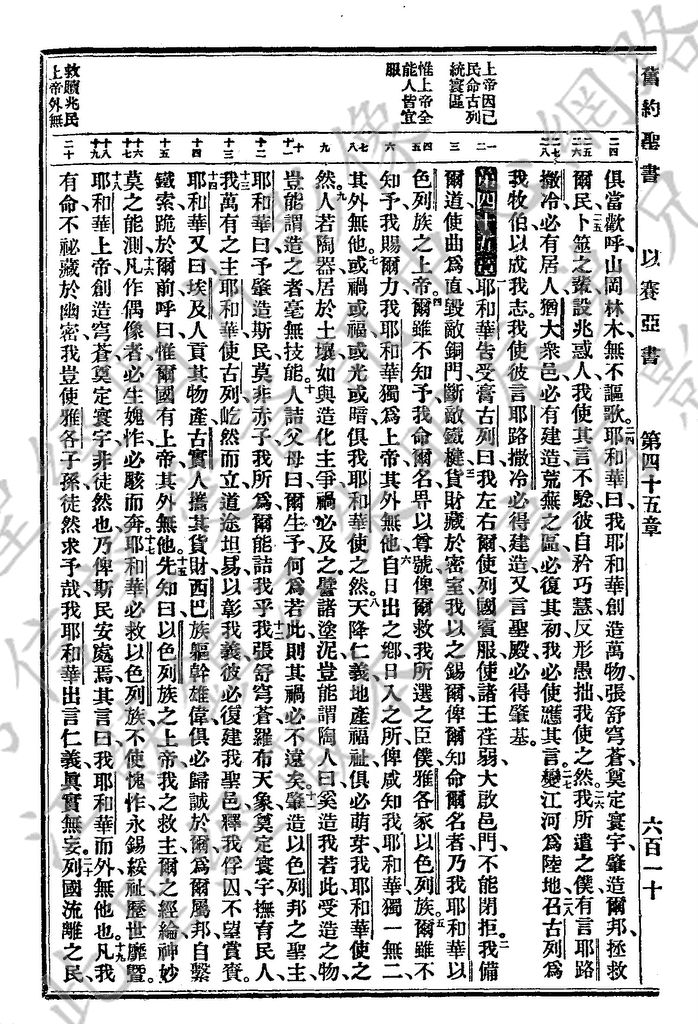 舊約聖書 以賽亞書 第四十五章 六百一十
俱當歡呼山岡林木無不謳歌耶和華曰我耶和華創造萬物張舒穹蒼奠定寰宇肇造爾邦拯救
爾民卜筮之輩設兆惑人我使其言不驗彼自矜巧慧反形愚拙我使之然我所遣之僕有言耶路
撒冷必有居人猶大衆邑必有建造荒蕪之區必復其初我必使應其言變江河爲陸地召古列爲
我牧伯以成我志我使彼言耶路撒冷必得建造又言聖殿必得肇基
第四十五章 耶和華告受膏古列曰我左右爾使列國賓服使諸王荏弱大啟邑門不能閉拒我備
爾道使曲爲直毀敵銅門斷敵鐵楗貨財藏於密室我以之錫爾俾爾知命爾名者乃我耶和華以
色列族之上帝爾雖不知予我命爾名畀以尊號俾爾救我所選之臣僕雅各家以色列族爾雖不
知予我賜爾力我耶和華獨爲上帝其外無他自日出之鄉日入之所俾咸知我耶和華獨一無二
其外無他或禍或福或光或暗俱我耶和華使之然天降仁義地產福祉俱必萌芽我耶和華使之
然人若陶器居於土壤如與造化主爭禍必及之譬諸塗泥豈能謂陶人曰奚造我若此受造之物
豈能謂造之者毫無技能人詰父母曰爾生予何爲若此則其禍必不遠矣肇造以色列邦之聖主
耶和華曰予肇造斯民莫非赤子我所爲爾能詰我乎我張舒穹蒼羅布天象奠定寰宇撫育民人
我萬有之主耶和華使古列屹然而立道途坦易以彰我義彼必復建我聖邑釋我俘囚不望賞賚
耶和華又曰埃及人貢其物產古實人攜其貨財西巴族軀幹雄偉俱必歸誠於爾爲爾屬邦自繫
鐵索跪於爾前呼曰惟爾國有上帝其外無他先知曰以色列族之上帝我之救主爾之經綸神妙
莫之能測凡作偶像者必生媿怍必駭而奔耶和華必救以色列族不使愧怍永錫綏祉歷世靡曁
耶和華上帝創造穹蒼奠定寰宇非徒然也乃俾斯民安處焉其言曰我耶和華而外無他也凡我
有命不祕藏於幽密我豈使雅各子孫徒然求予哉我耶和華出言仁義眞實無妄列國流離之民
上帝因己民命古列統寰區
惟上帝全能人皆宜服
救贖兆民上帝外無